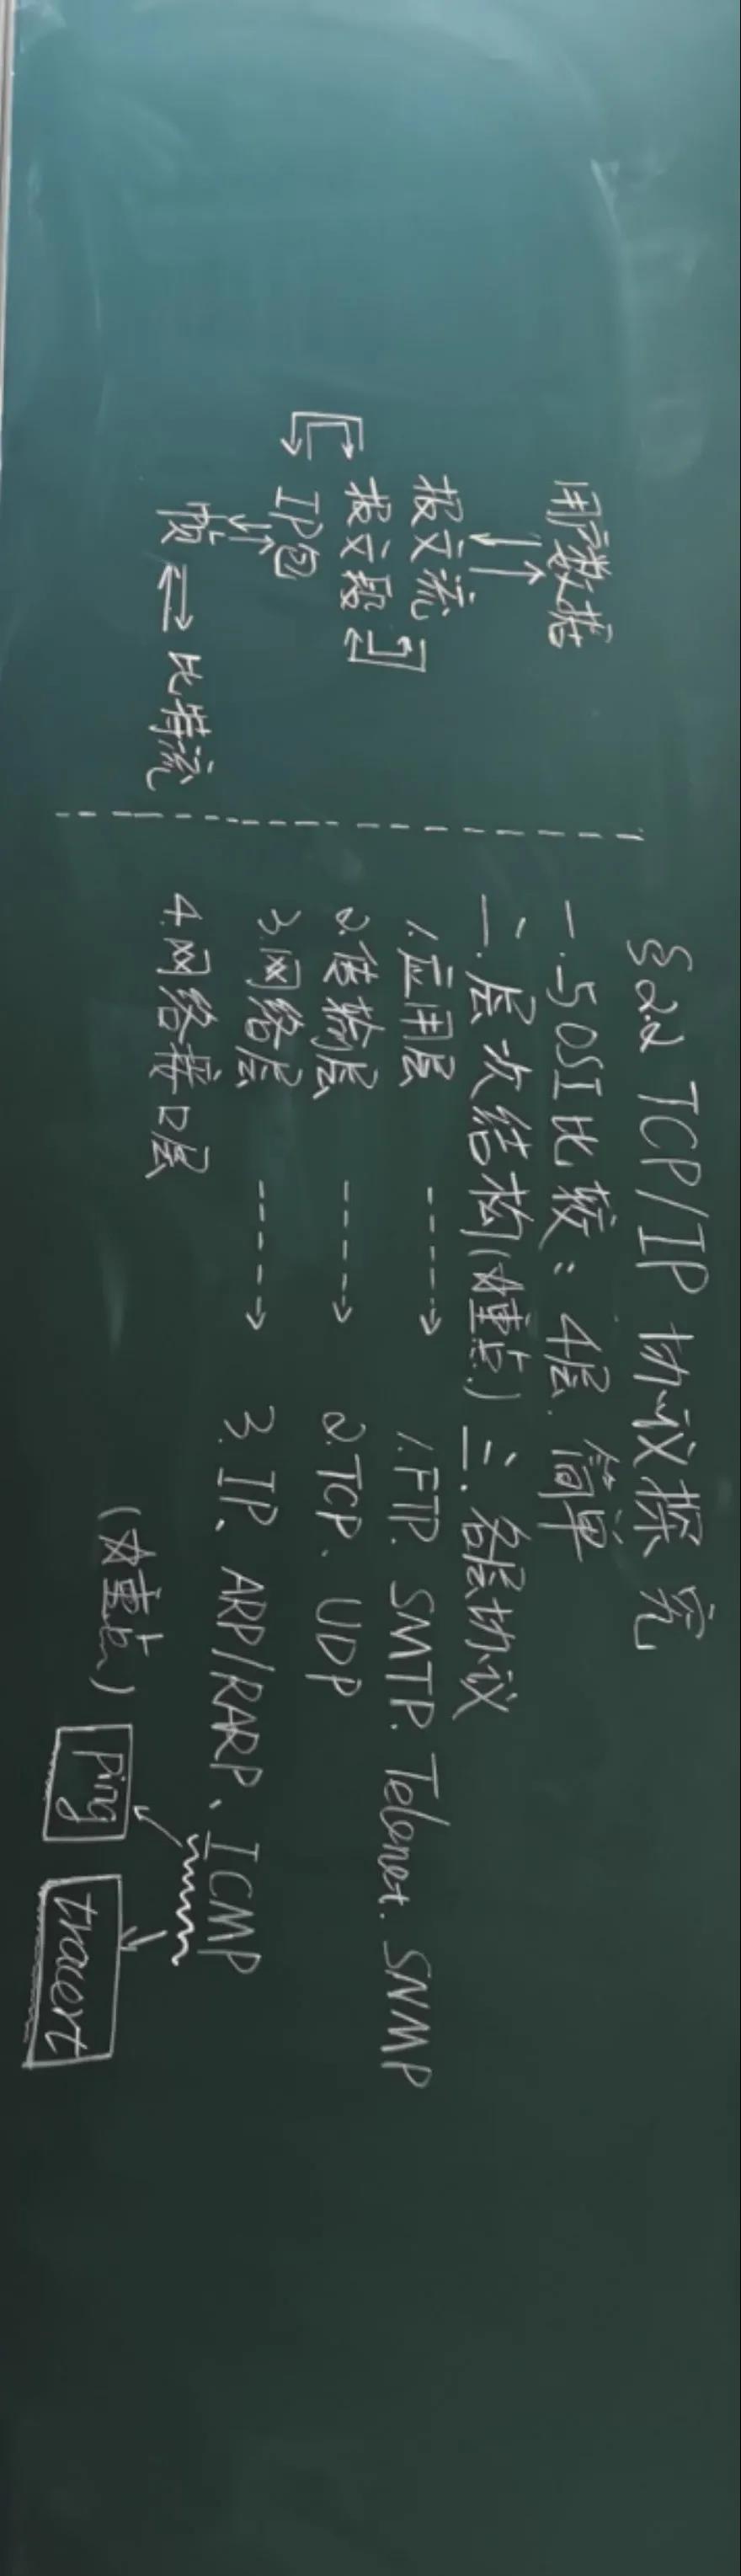 用户数据
报文流
报文段
IP包
帧 比特流
§2.2 TCP/IP 协议探究
一. 与OSI比较: 4层. 简单
二. 层次结构(☆重点)
1.应用层
2.传输层
3.网络层
4.网络接口层
三. 各层协议
1.FTP. SMTP. Telenet. SNMP
2.TCP、UDP
3.IP、ARP/RARP、ICMP
(☆重点)
Ping
tracert